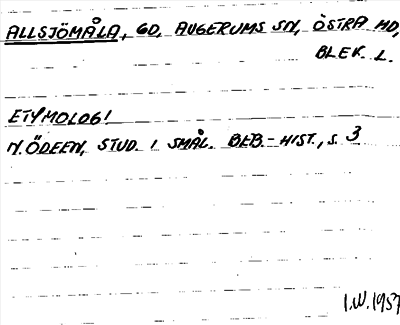 ALLSJÖMÅLA, GD, AUGERUMS SN, ÖSTRA HD,
BLEK. L.
ETYMOLOGI
N. ÖDEEN, STUD. I SMÅL. BEB.-HIST., S. 3
I.W. 1957